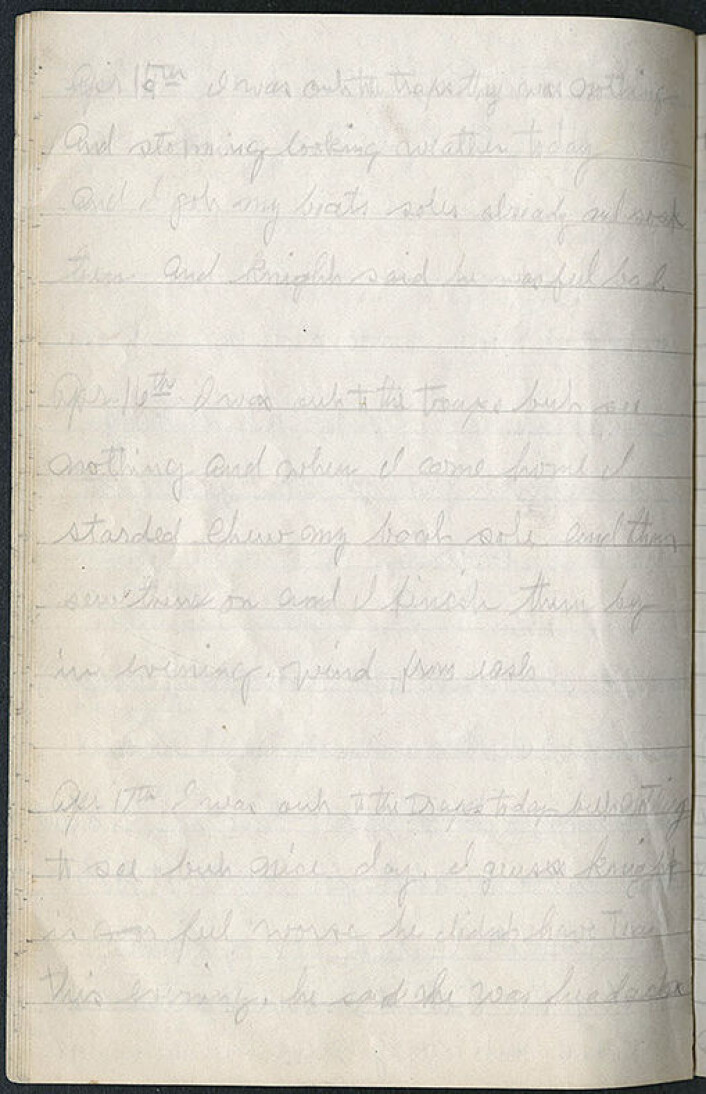 Apr 15th I was out the traps they was nothing
And storming looking weather today
And I got my boats soles already and soak
them And Knight said he was feel bad.
Apr. 16th I was out to the traps but see
nothing and when I came home I
starded chew my boat sole and then
sew them on and I finish them by
in evening. wind from east
Apr 17th I was out to the traps today but nothing
to see but nice day. I guess Knight
is feel worse he didnt have Tea
this evening. he said he was headache